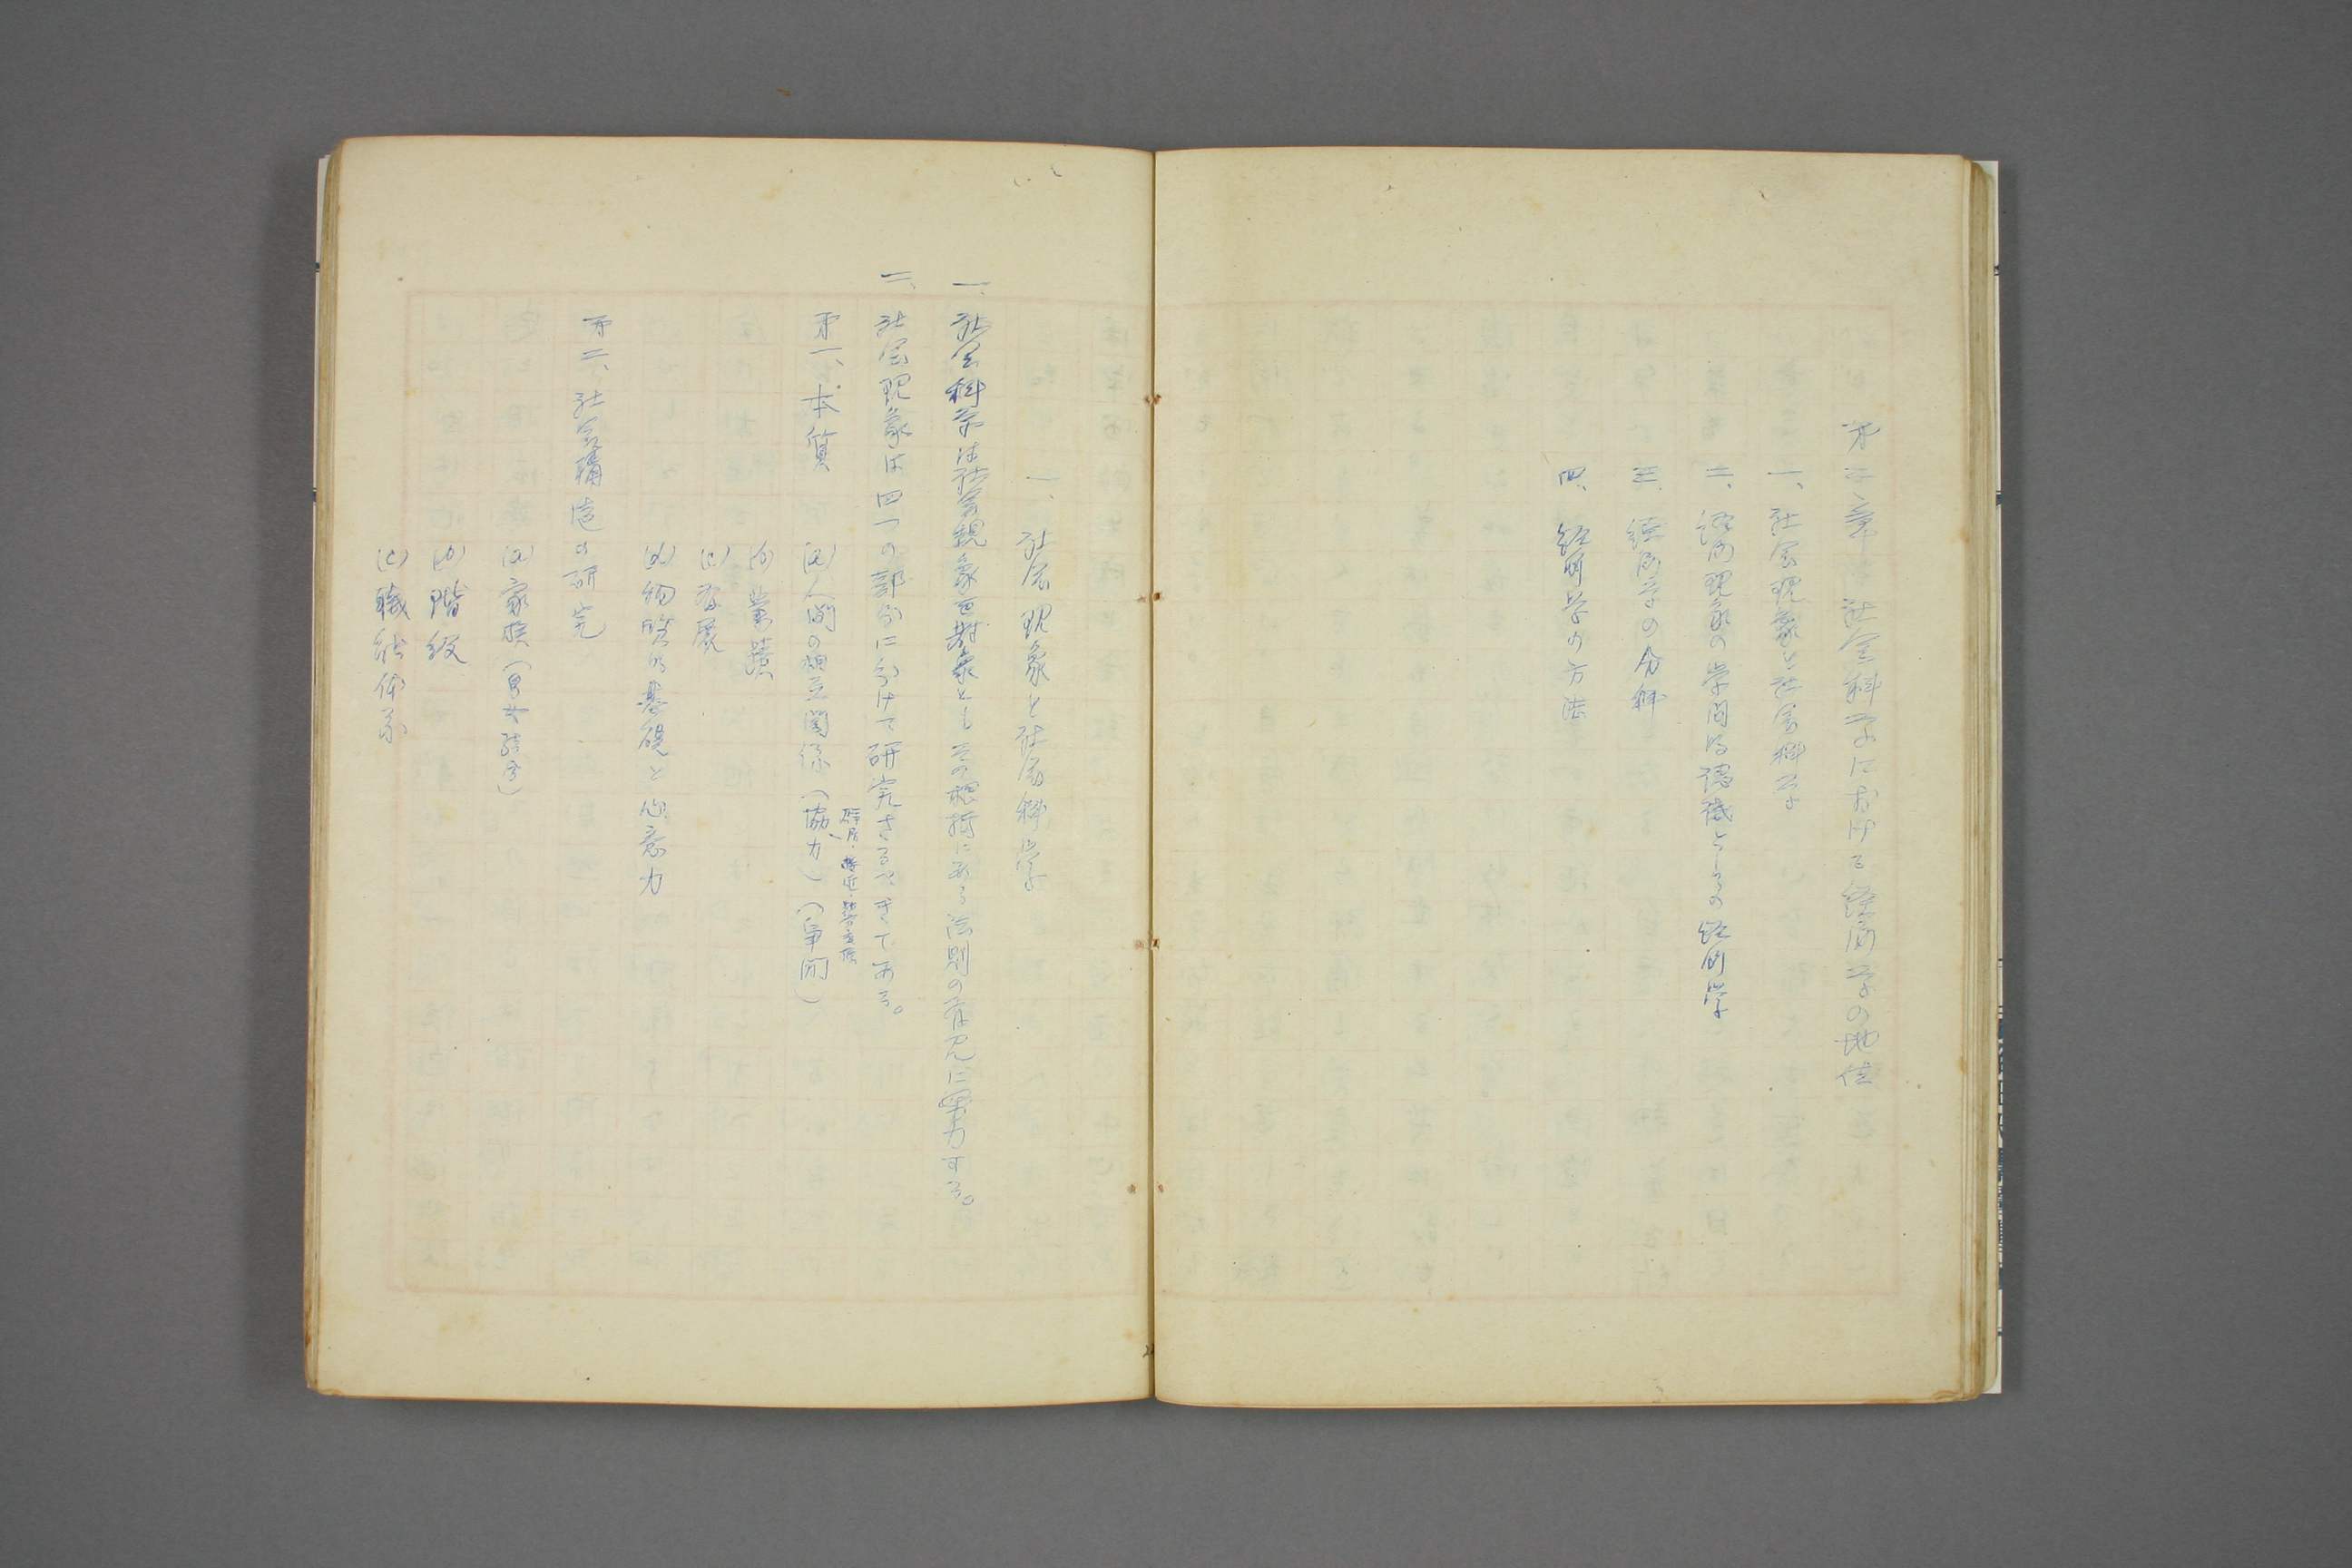 第二章 社会科学における経済学の地位
一、社会現象と社会科学
二、経済現象の学問的認識としての経済学
三、経済学の分科
四、経済学の方法
一、社会現象と社会科学
一、社会科学は社会現象を対象としその根柢にある法則の発見に努力する。
二、社会現象は四つの部分に分けて研究さるべきである。
第一、本質
(a)人間の相互関係(協力)(争闘)
(b)業蹟
(c)発展
(d)物質的基礎と心意力
第二、社会構造の研究
(a)家族(男女結合)
(b)階級
(c)職能体系